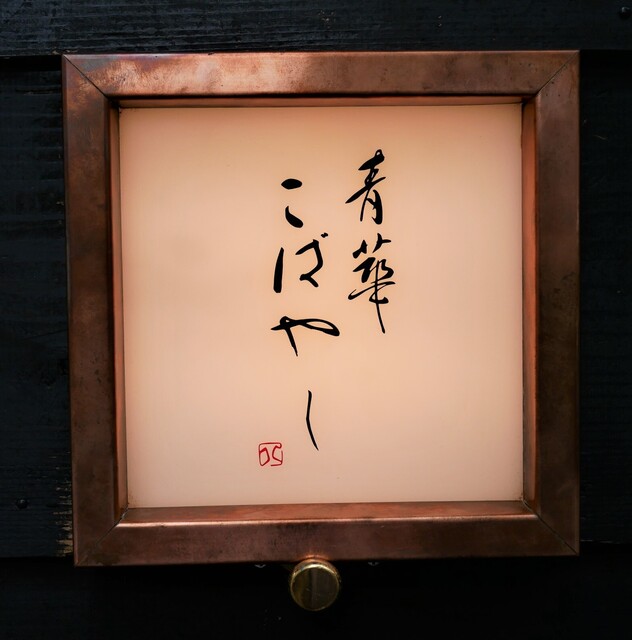 青華
こばやし